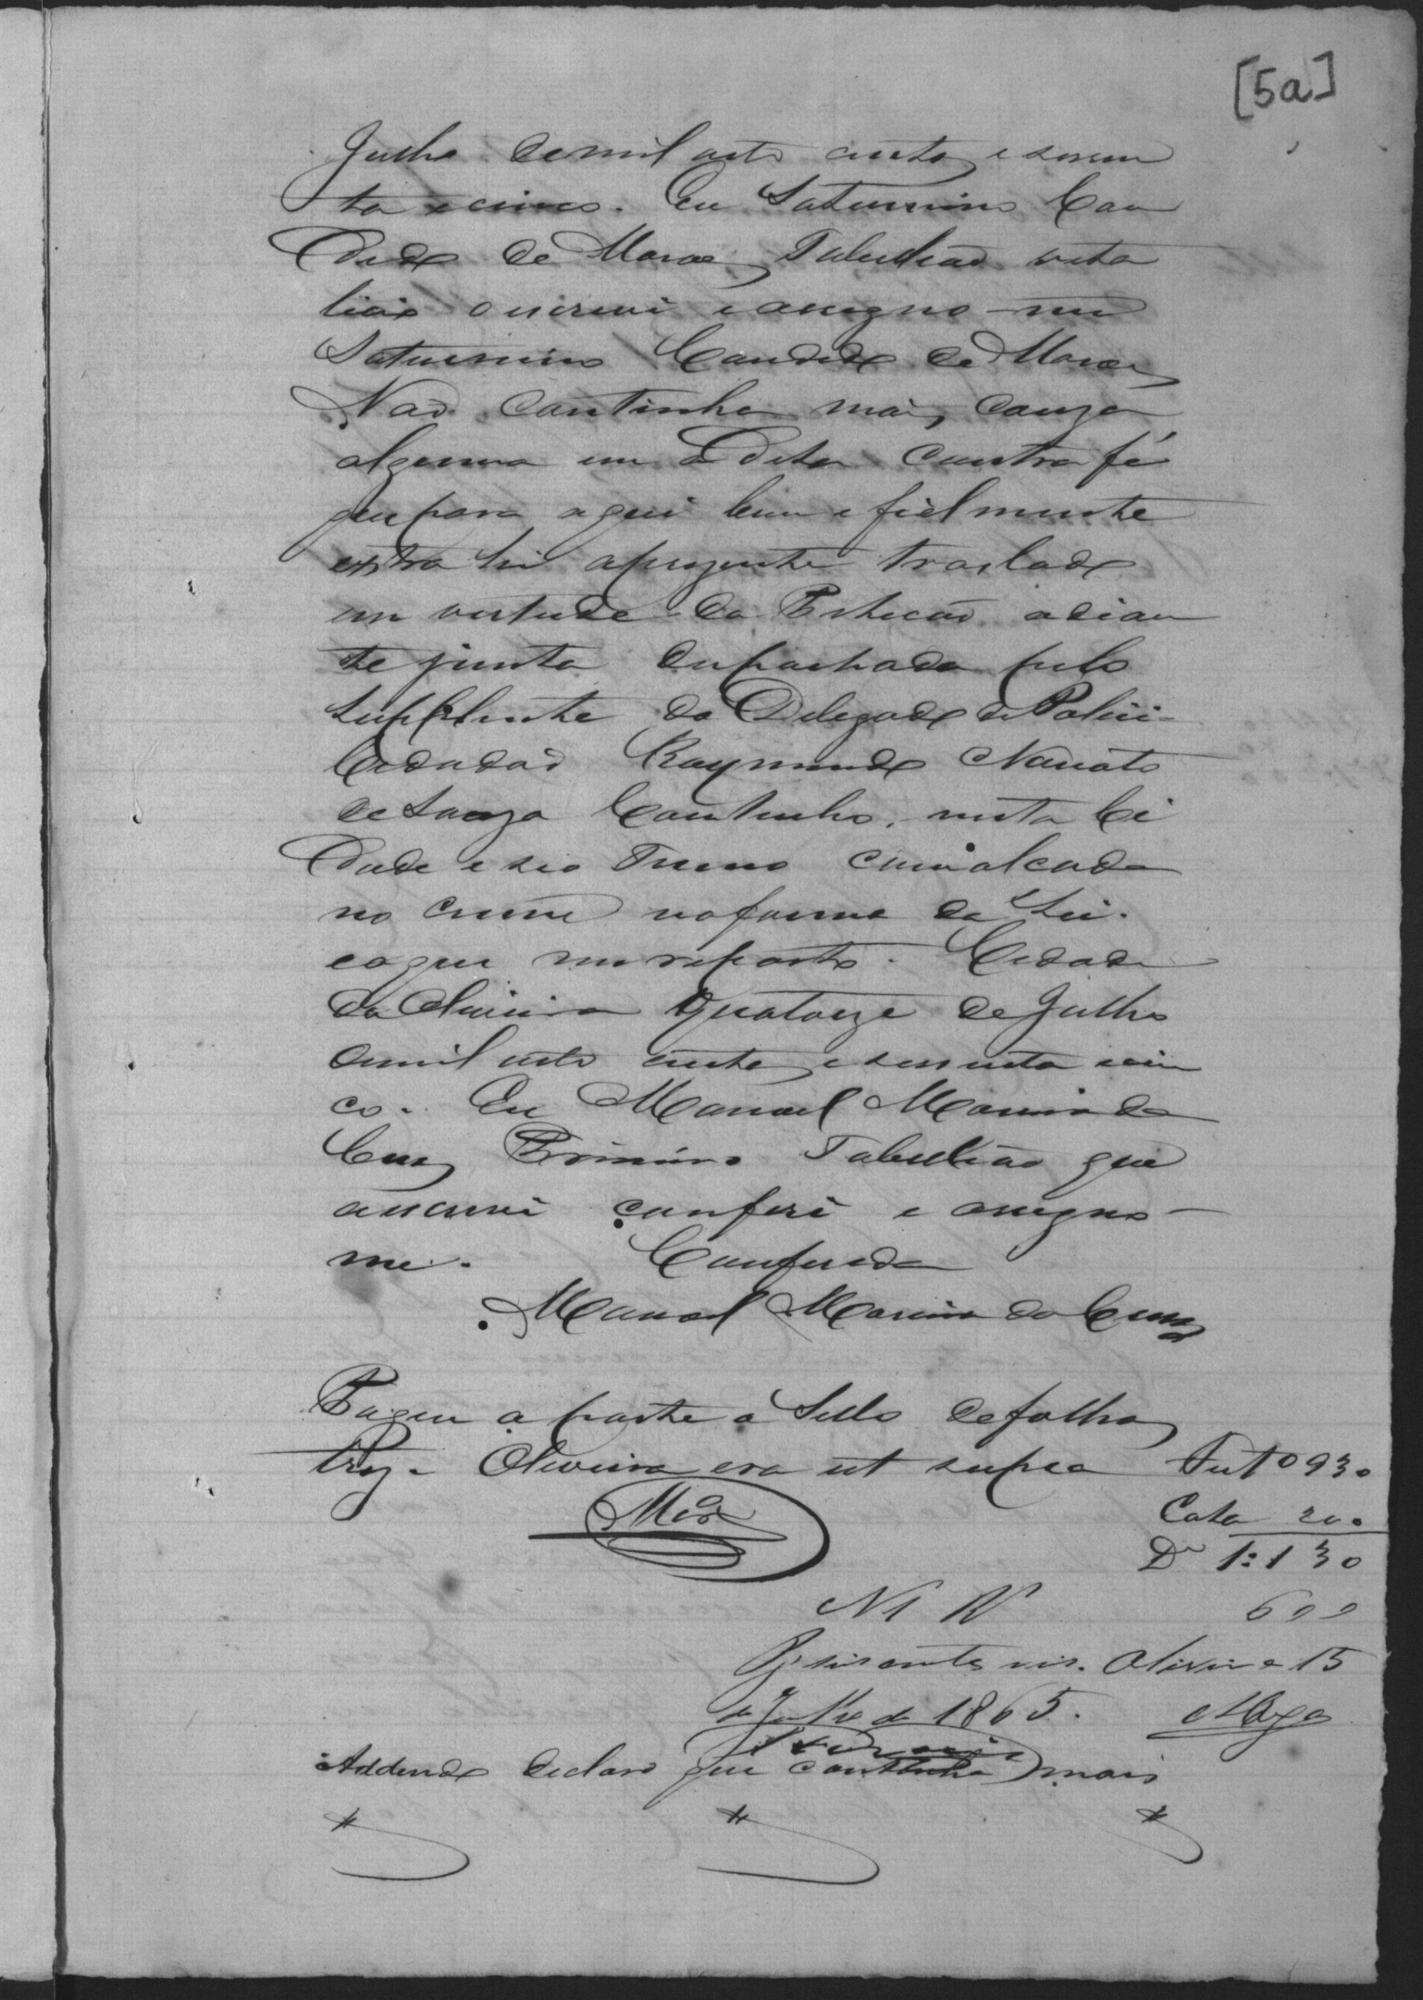 [5a]
Julho de mil oito centos e sessen
ta e cinco. Eu Saturnino Can
dido de Moraes Tabelliaõ vita
licio o escrevi e assigno-me
Saturnino Candido de Moraes
Naõ continha mais couza
alguma em a dita contra fé
que para aqui bem e fielmente
extra hi aprezente traslado
em vertude da Peticaõ adian
te junta despachada pelo
supplente do Delegado de Policia
Cidadaõ Raymundo Nonato
de Souza Coutinho, nesta Ci
dade e seo Termo com alcada
no crime na forma da Lei.
eaque me reporto. Cidade
da Oliveira quatorze de Julho
demil oito centos e sessenta e cin
co. Eu Manoel Maria da
Cruz Primeiro Tabelliaõ que
a escrevi conferi e assigno-
me. Conferida
Manoel Maria da Cruz
Pagou a parte o Sello de folhas
trez. Oliveira era ut supra
930
Cota 200
1:130
N 1 600
Pg. seis centos reis. Oliveira 15
de Julho de 1865.
Addendo declaro que continha mais